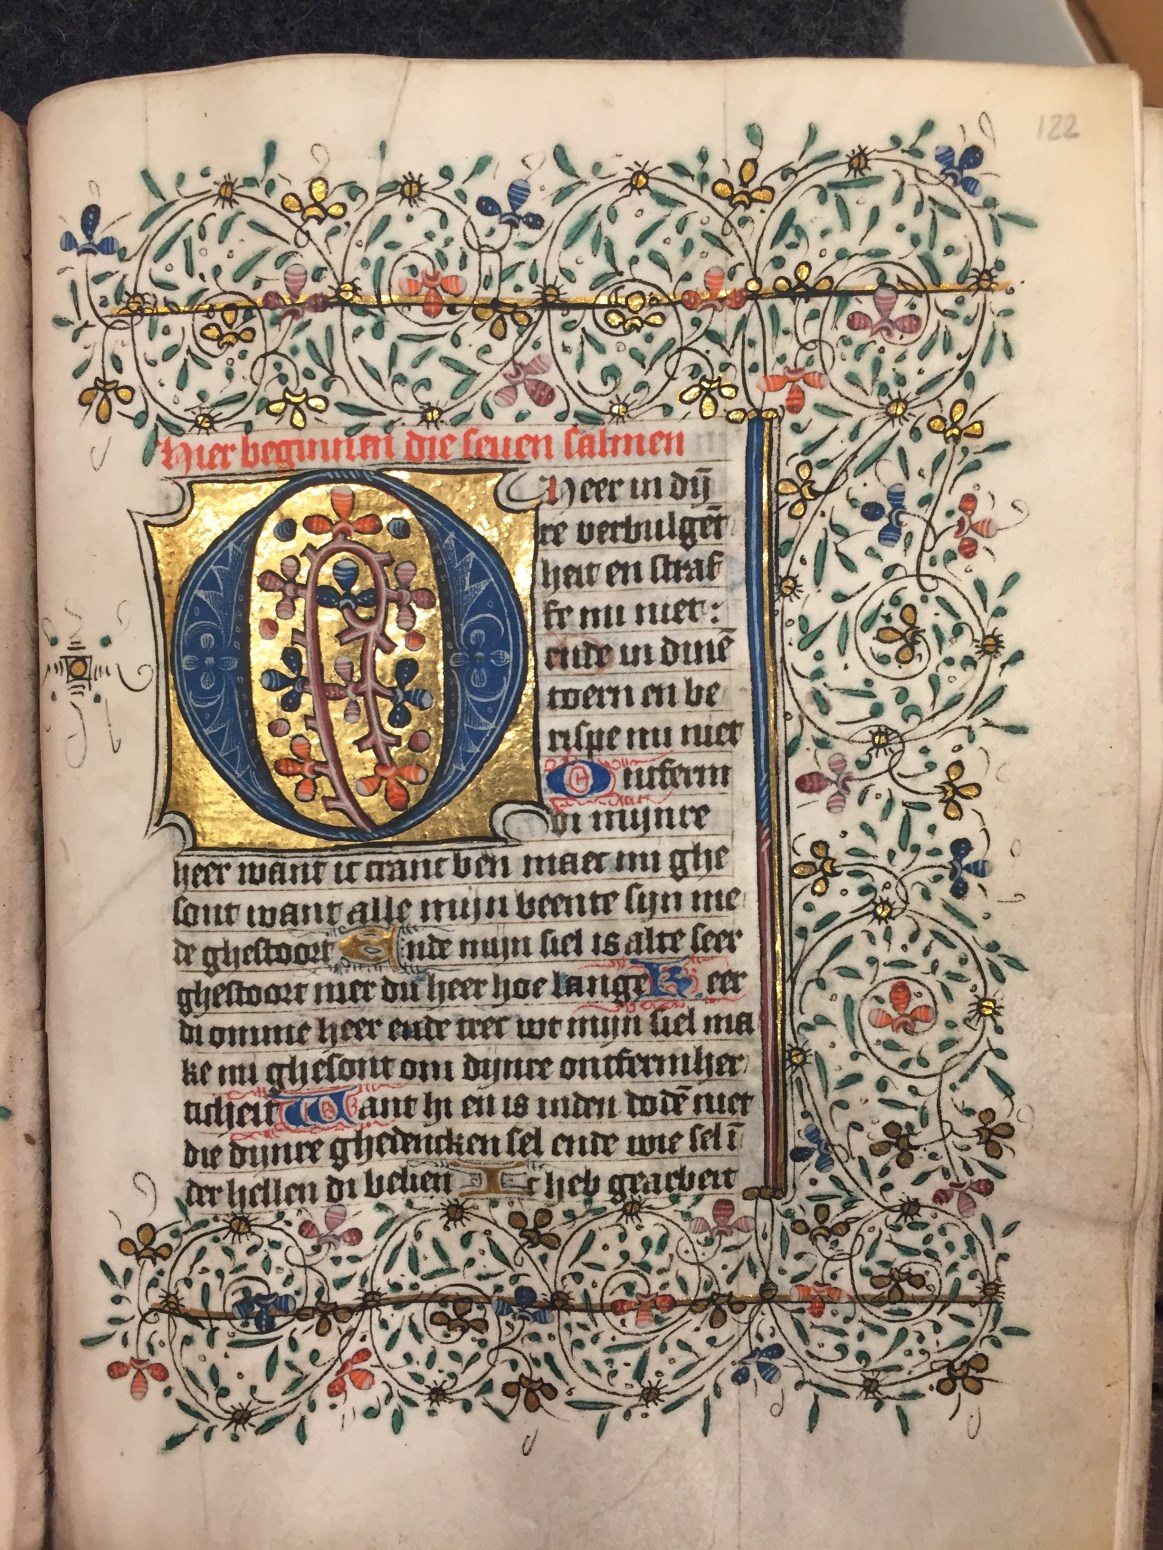 122
Hier beginnen die seuen salmen
O Heer in dij̄
re verbulgēt
heit en straf
fe mi niet:
ende in dinē
toern en be
rispe mi niet
Ontferm
di mijnre
heer want ic cranc ben maec mi ghe
sont want alle mijn beente sijn me
de ghestoort Ende mijn siel is alte seer
ghestoort mer du heer hoe lange Keer
di omme heer ende trec wt mijn siel ma
ke mi ghesont om dijnre ontfermher
ticheit Want hi en is inden dodē niet
die dijnre ghedencken sel ende wie sel ī
der hellen di belien Ic heb gearbeit